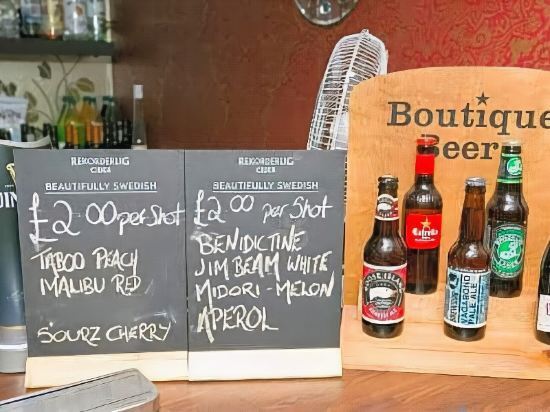 REKORDERLIG
CIDER
BEAUTIFULLY SWEDISH
£2.00 per Shot
TABOO PEACH
MALIBU RED
SOURZ CHERRY
REKORDERLIG
CIDER
BEAUTIFULLY SWEDISH
£2.00 per Shot
BENIDICTINE
JIM BEAM WHITE
MIDORI - MELON
APEROL
Boutique
Beer
Estrella
GOOSE ISLAND
VAGABOND
PALE ALE